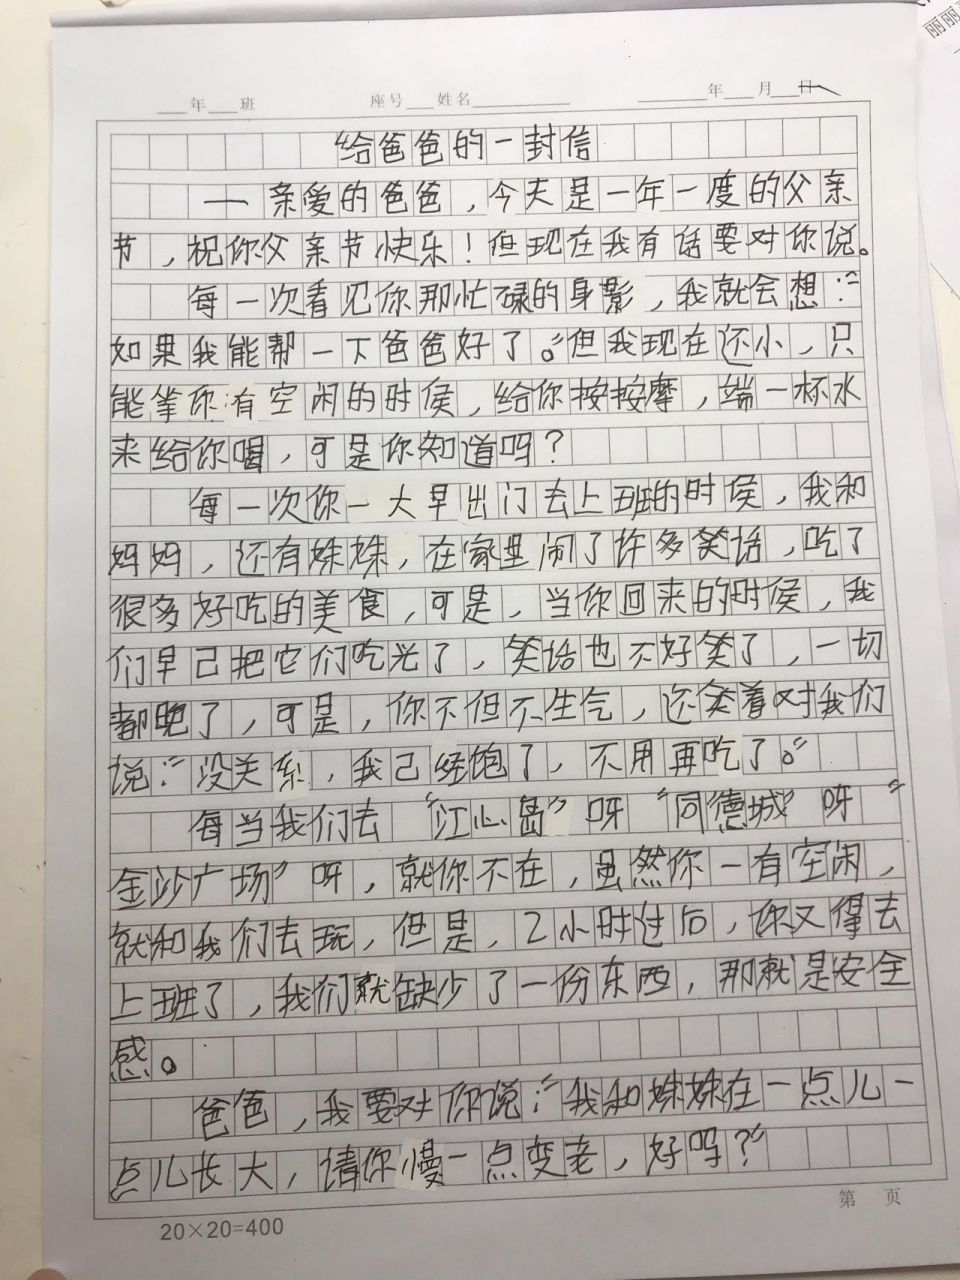 丽丽
年 班 座号 姓名 年 月 日
给爸爸的一封信
一亲爱的爸爸，今天是一年一度的父亲
节，祝你父亲节快乐！但现在我有话要对你说。
每一次看见你那忙碌的身影，我就会想：“
如果我能帮一下爸爸好了。”但我现在还小，只
能等你有空闲的时候，给你按按摩，端一杯水
来给你喝，可是你知道吗？
每一次你一大早出门去上班的时候，我和
妈妈，还有妹妹，在家里闹了许多笑话，吃了
很多好吃的美食，可是，当你回来的时候，我
们早已把它们吃光了，笑话也不好笑了，一切
都晚了，可是，你不但不生气，还笑着对我们
说：“没关系，我已经饱了，不用再吃了。”
每当我们去“江心岛”呀“同德城”呀“
金沙广场”呀，就你不在，虽然你一有空闲，
就和我们去玩，但是，2小时过后，你又得去
上班了，我们就缺少了一份东西，那就是安全
感。
爸爸，我要对你说：“我和妹妹在一点儿一
点儿长大，请你慢一点变老，好吗？”
第 页
20×20=400